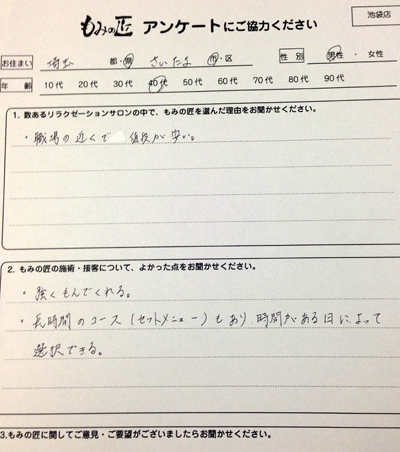 池袋店
もみの匠 アンケートにご協力ください
お住まい 埼玉 都・県 さいたま 市・区 性別 男性・女性
年齢 10代 20代 30代 40代 50代 60代 70代 80代 90代
1. 数あるリラクゼーションサロンの中で、もみの匠を選んだ理由をお聞かせください。
・職場の近くで 値段が安い。
2. もみの匠の施術・接客について、よかった点をお聞かせください。
・強くもんでくれる。
・長時間のコース(セットメニュー)もあり 時間がある日によって
選択できる。
3.もみの匠に関してご意見・ご要望がございましたらお聞かせください。